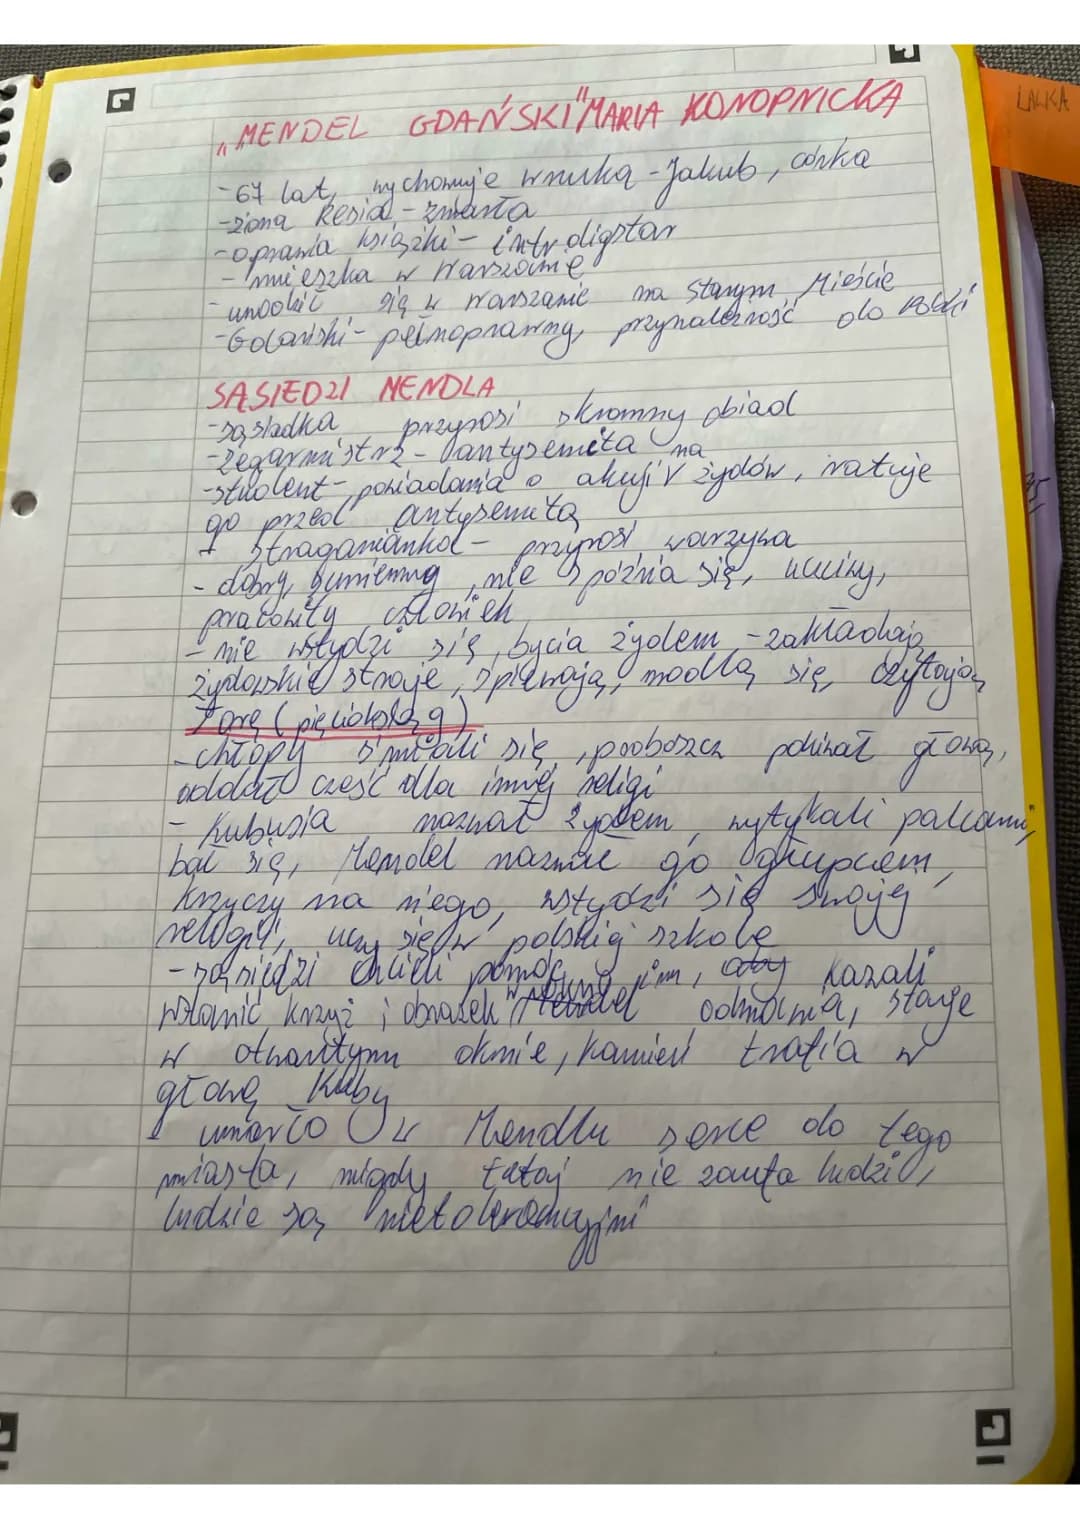 „MENDEL GDAŃSKI" MARIA KONOPNICKA
LALKA
- 67 lat, wychowuje wnuka - Jakub, córka
- żona Resia - zmarła
- oprawia książki - introdigator
- mieszka w Warszawie
- urodził się w Warszawie na Starym Mieście
- Gdański - pełnoprawny, przynależność do Polski
SĄSIEDZI MENDLA
- sąsiadka przynosi skromny obiad
- zegarmistrz - antysemita
- student - powiadamia o akcji na żydów, ratuje
go przed antysemitą
- straganiarka - przynosi warzywa
- dobry, sumienny, nie spóźnia się, uczciwy,
pracowity człowiek
- nie wstydzi się bycia żydem - zakładają
żydowskie stroje, śpiewają, modlą się, czytają
Torę (pięcioksiąg)
- chłopy śmiali się, proboszcz pokiwał głową,
oddał cześć dla innej religi
- Kubusia nazwał żydem, wytykali palcami,
bał się, Mendel nazwał go głupcem,
krzyczy na niego, wstydzi się swojej
religii, uczy się w polskiej szkole
- sąsiedzi chcieli pomóc im, aby kazali
wstawić krzyż i obrazek w okno Mendel odmawia, staje
w otwartym oknie, kamień trafia w
głowę Kuby
- umarło w Mendlu serce do tego
miasta, nigdy tutaj nie zaufa ludzi,
ludzie są nietolerancyjni